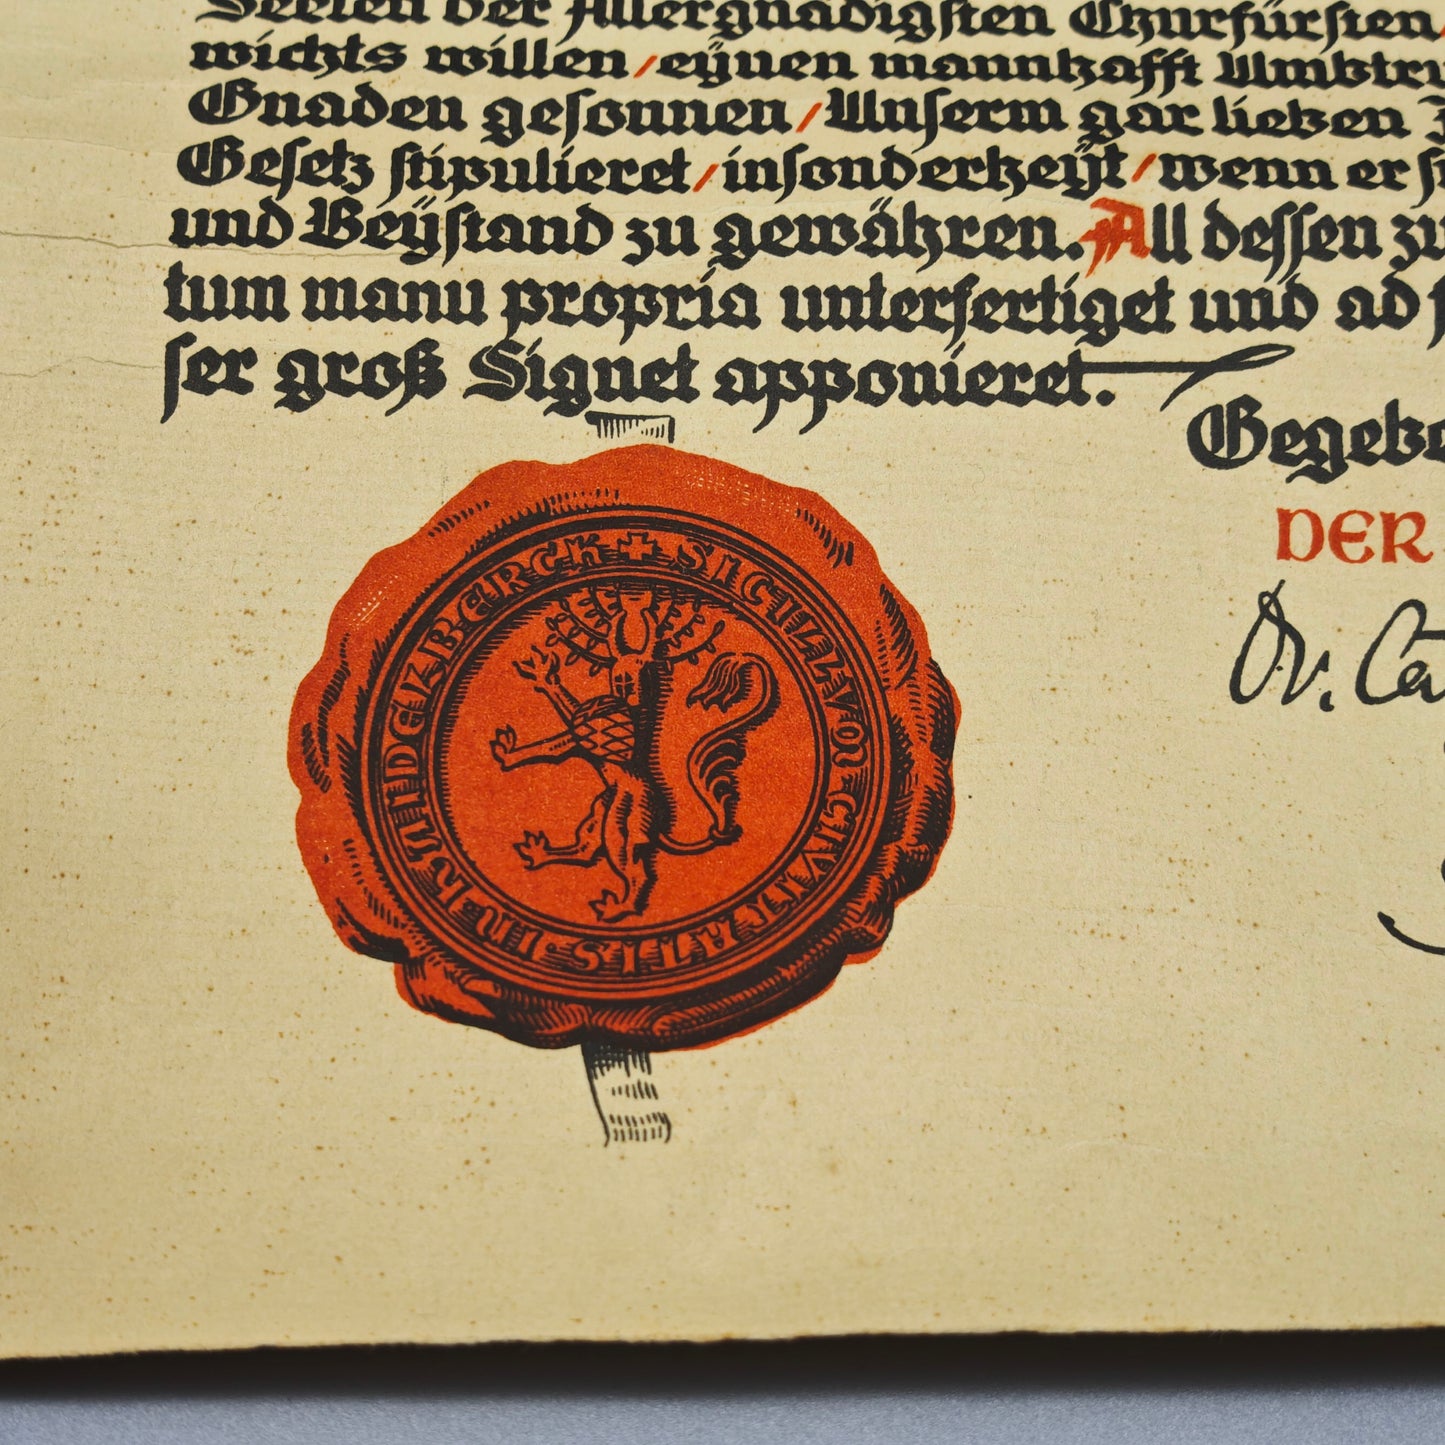 Seelen der Allergnädigsten Churfürsten
wichts willen / eÿnen mannhafft Umbtru
Gnaden gesonnen / Unserm gar lieben
Gesetz stipulieret / insonderheÿt / wenn er
und Beÿstand zu gewähren. All dessen zu
tum manu propria unterfertiget und ad
ser groß Signet apponieret.
Gegebe
DER
Dr. Ca
✚ SIGILLVM CIVITATIS IN